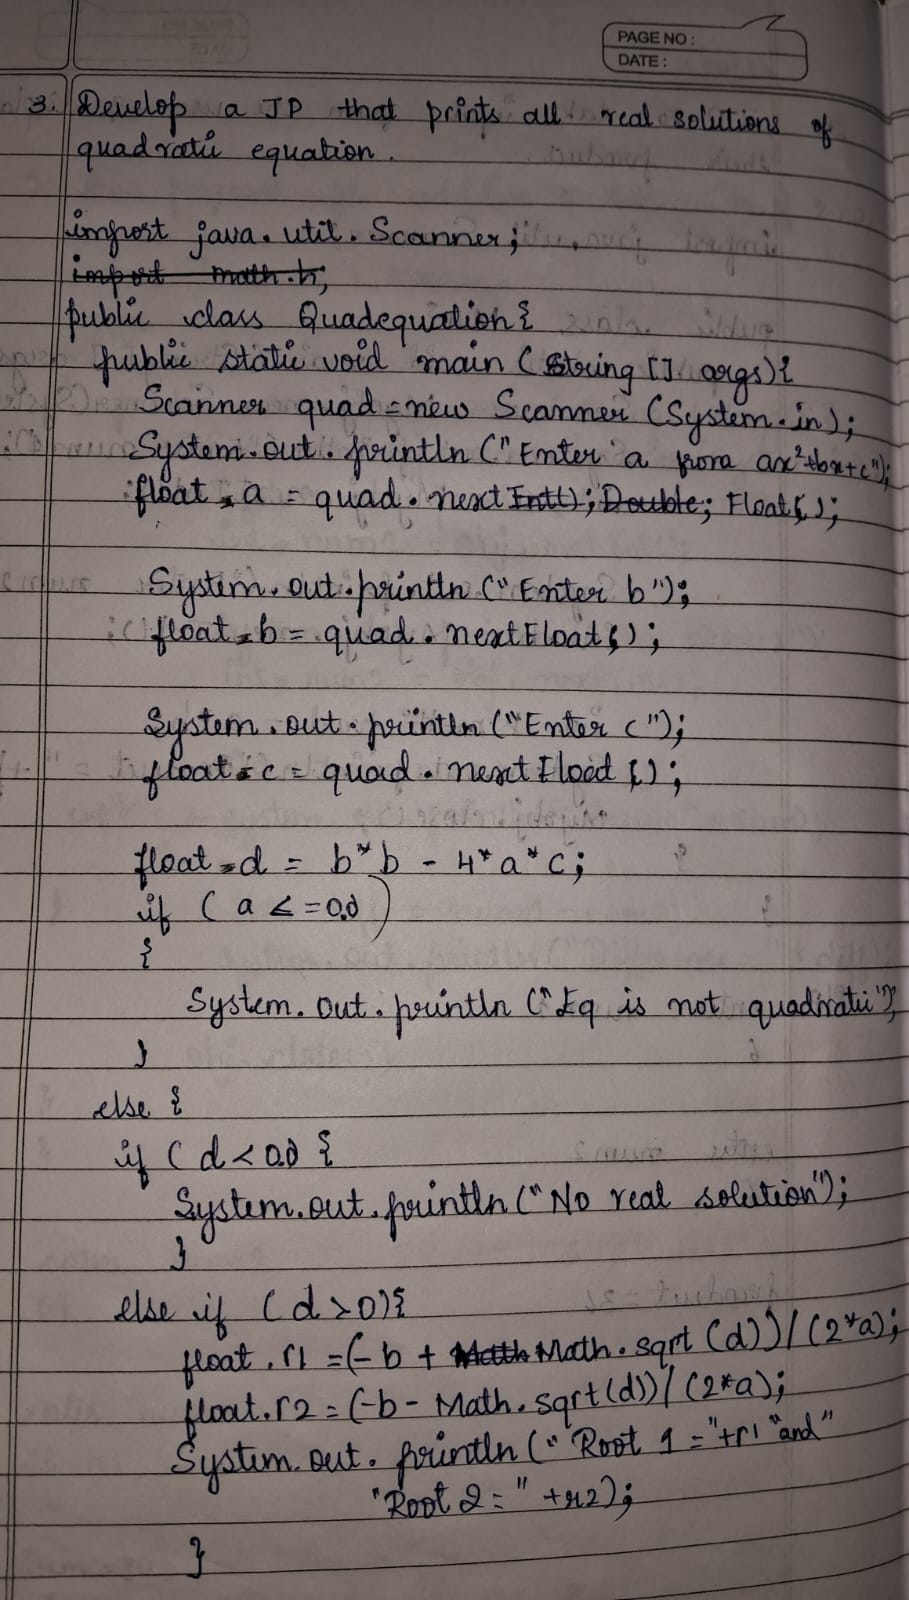 PAGE NO :
DATE :
3. Develop a JP that prints all real solutions of
quadratic equation.
import java.util.Scanner;
import math.h;
public class Quadequation{
public static void main (String [] args){
Scanner quad = new Scanner (System.in);
System.out.println ("Enter a from ax²+bx+c");
float a = quad.nextInt(); Double; Float();
System.out.println ("Enter b");
float b = quad.nextFloat();
System.out.println ("Enter c");
float c = quad.nextFload ();
float d = b*b - 4*a*c;
if (a <=0.0)
{
System.out.println ("Eq is not quadratic");
}
else {
if (d<0.0 {
System.out.println ("No real solution");
}
else if (d>0){
float.r1 =(-b + Math Math.sqrt(d))/(2*a);
float.r2 = (-b - Math.sqrt(d))/(2*a);
System.out.println ("Root 1 ="+r1 "and"
"Root 2 =" +r2);
}